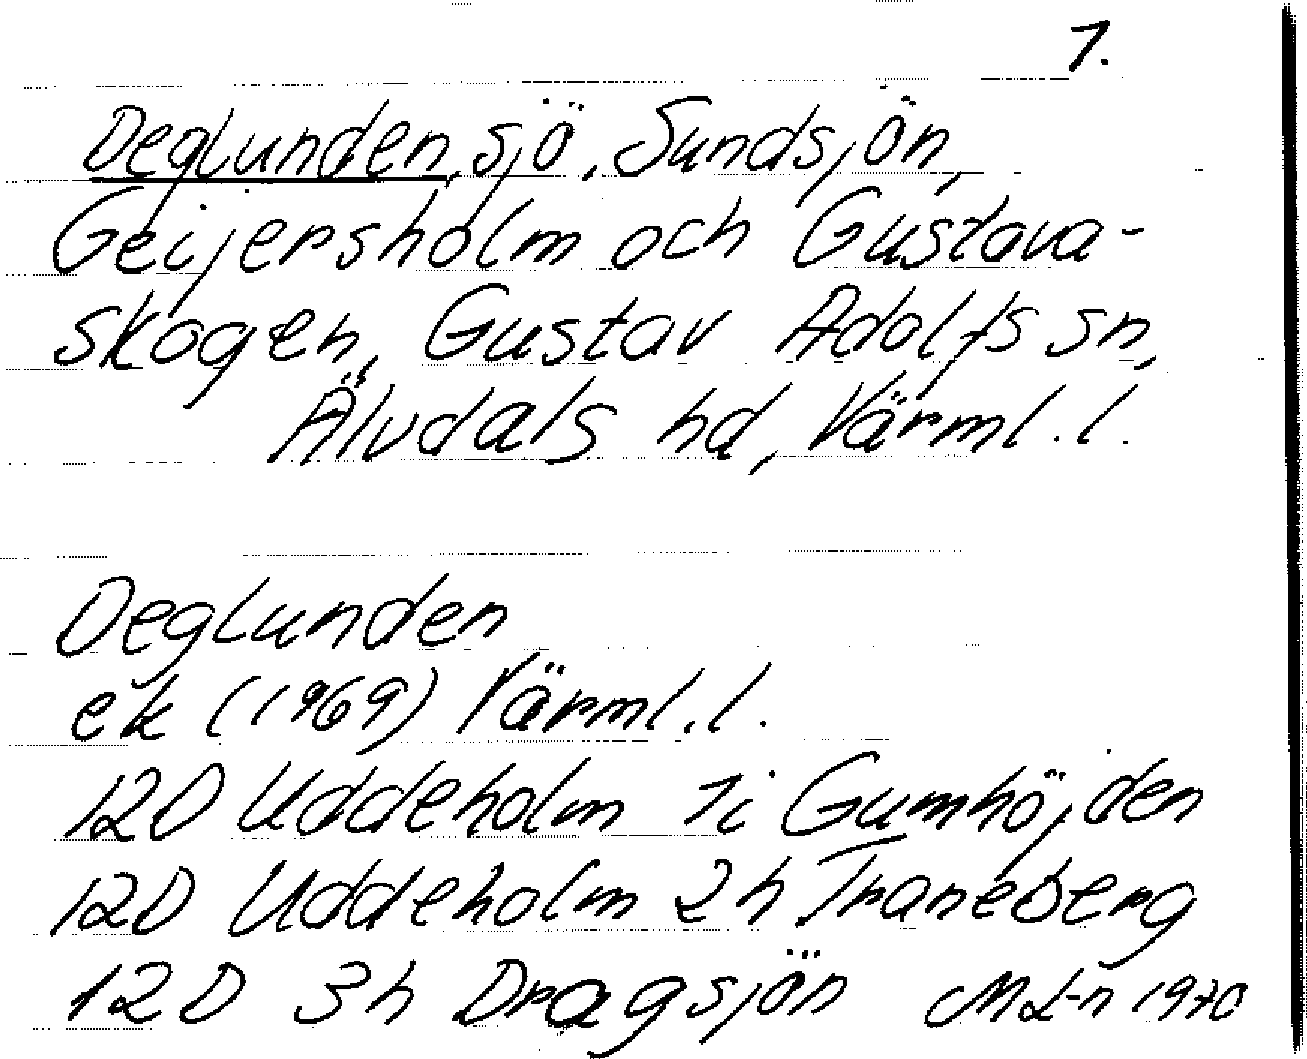 1.
Deglunden, sjö, Sundsjön,
Geijersholm och Gustava-
skogen, Gustav Adolfs sn,
Älvdals hd, Värml. l.
Deglunden
ek (1969) Värml. l.
12D Uddeholm 1i Gumhöjden
12D Uddeholm 2h Traneberg
12D 3h Dragsjön ML-n 1970